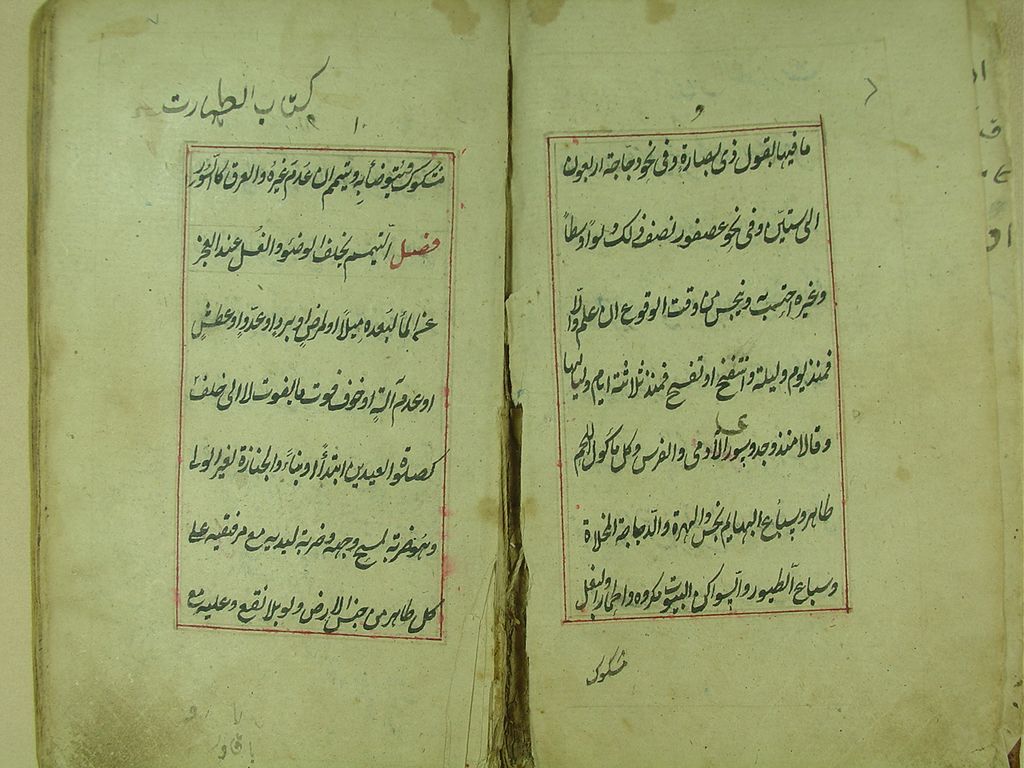 و
ما فيها بقول ذى بصارة وفى نحو دجاجة اربعون
الى ستين وفى نحو عصفور نصف ذلك ولو اوسطاً
وغيره احتسب به وينجس من وقت الوقوع ان علم والّا
فمنذ يوم وليلة وانتفخ او تفسخ فمنذ ثلاثة ايام ولياليها
وقالا منذ وجد وسور الآدمى والفرس وكل مأكول اللحم
طاهر وسباع البهايم نجس والهرة والدجاجة المخلاة
وسباع الطيور وسواكن البيوت مكروه والحمار والبغل
مشكوك
كتاب الطهارت
١٠
مشكوك يتوضأ به ويتيمم ان عدم غيره والعرق كالسور
فصل التيمم يخلف الوضوء والغسل عند العجز
عن الماء لبعده ميلاً او لمرض او برد او عدو او عطش
او عدم آلة او خوف فوت ما يفوت لا الى خلف
كصلوة العيدين ابتدأً او بناءً والجنازة لغير الولى
وهو ضربة لمسح وجهه وضربة ليديه مع مرفقيه على
كل طاهر من جنس الارض ولو بلا نقع وعليه مع